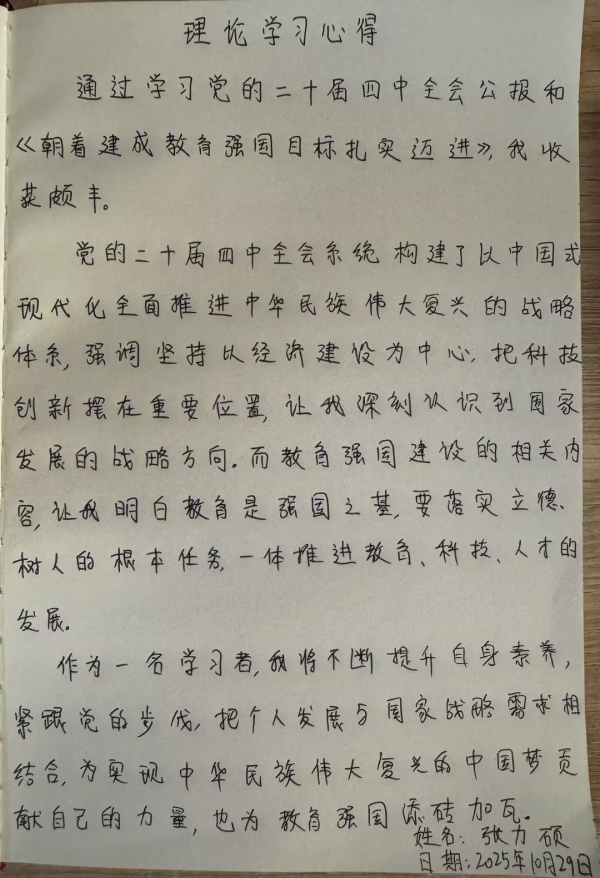 理论学习心得
通过学习党的二十届四中全会公报和
《朝着建成教育强国目标扎实迈进》，我收
获颇丰。
党的二十届四中全会系统构建了以中国式
现代化全面推进中华民族伟大复兴的战略
体系，强调坚持以经济建设为中心，把科技
创新摆在重要位置，让我深刻认识到国家
发展的战略方向。而教育强国建设的相关内
容，让我明白教育是强国之基，要落实立德
树人的根本任务，一体推进教育、科技、人才的
发展。
作为一名学习者，我将不断提升自身素养，
紧跟党的步伐，把个人发展与国家战略需求相
结合，为实现中华民族伟大复兴的中国梦贡
献自己的力量，也为教育强国添砖加瓦。
姓名：张力硕
日期：2025年10月29日